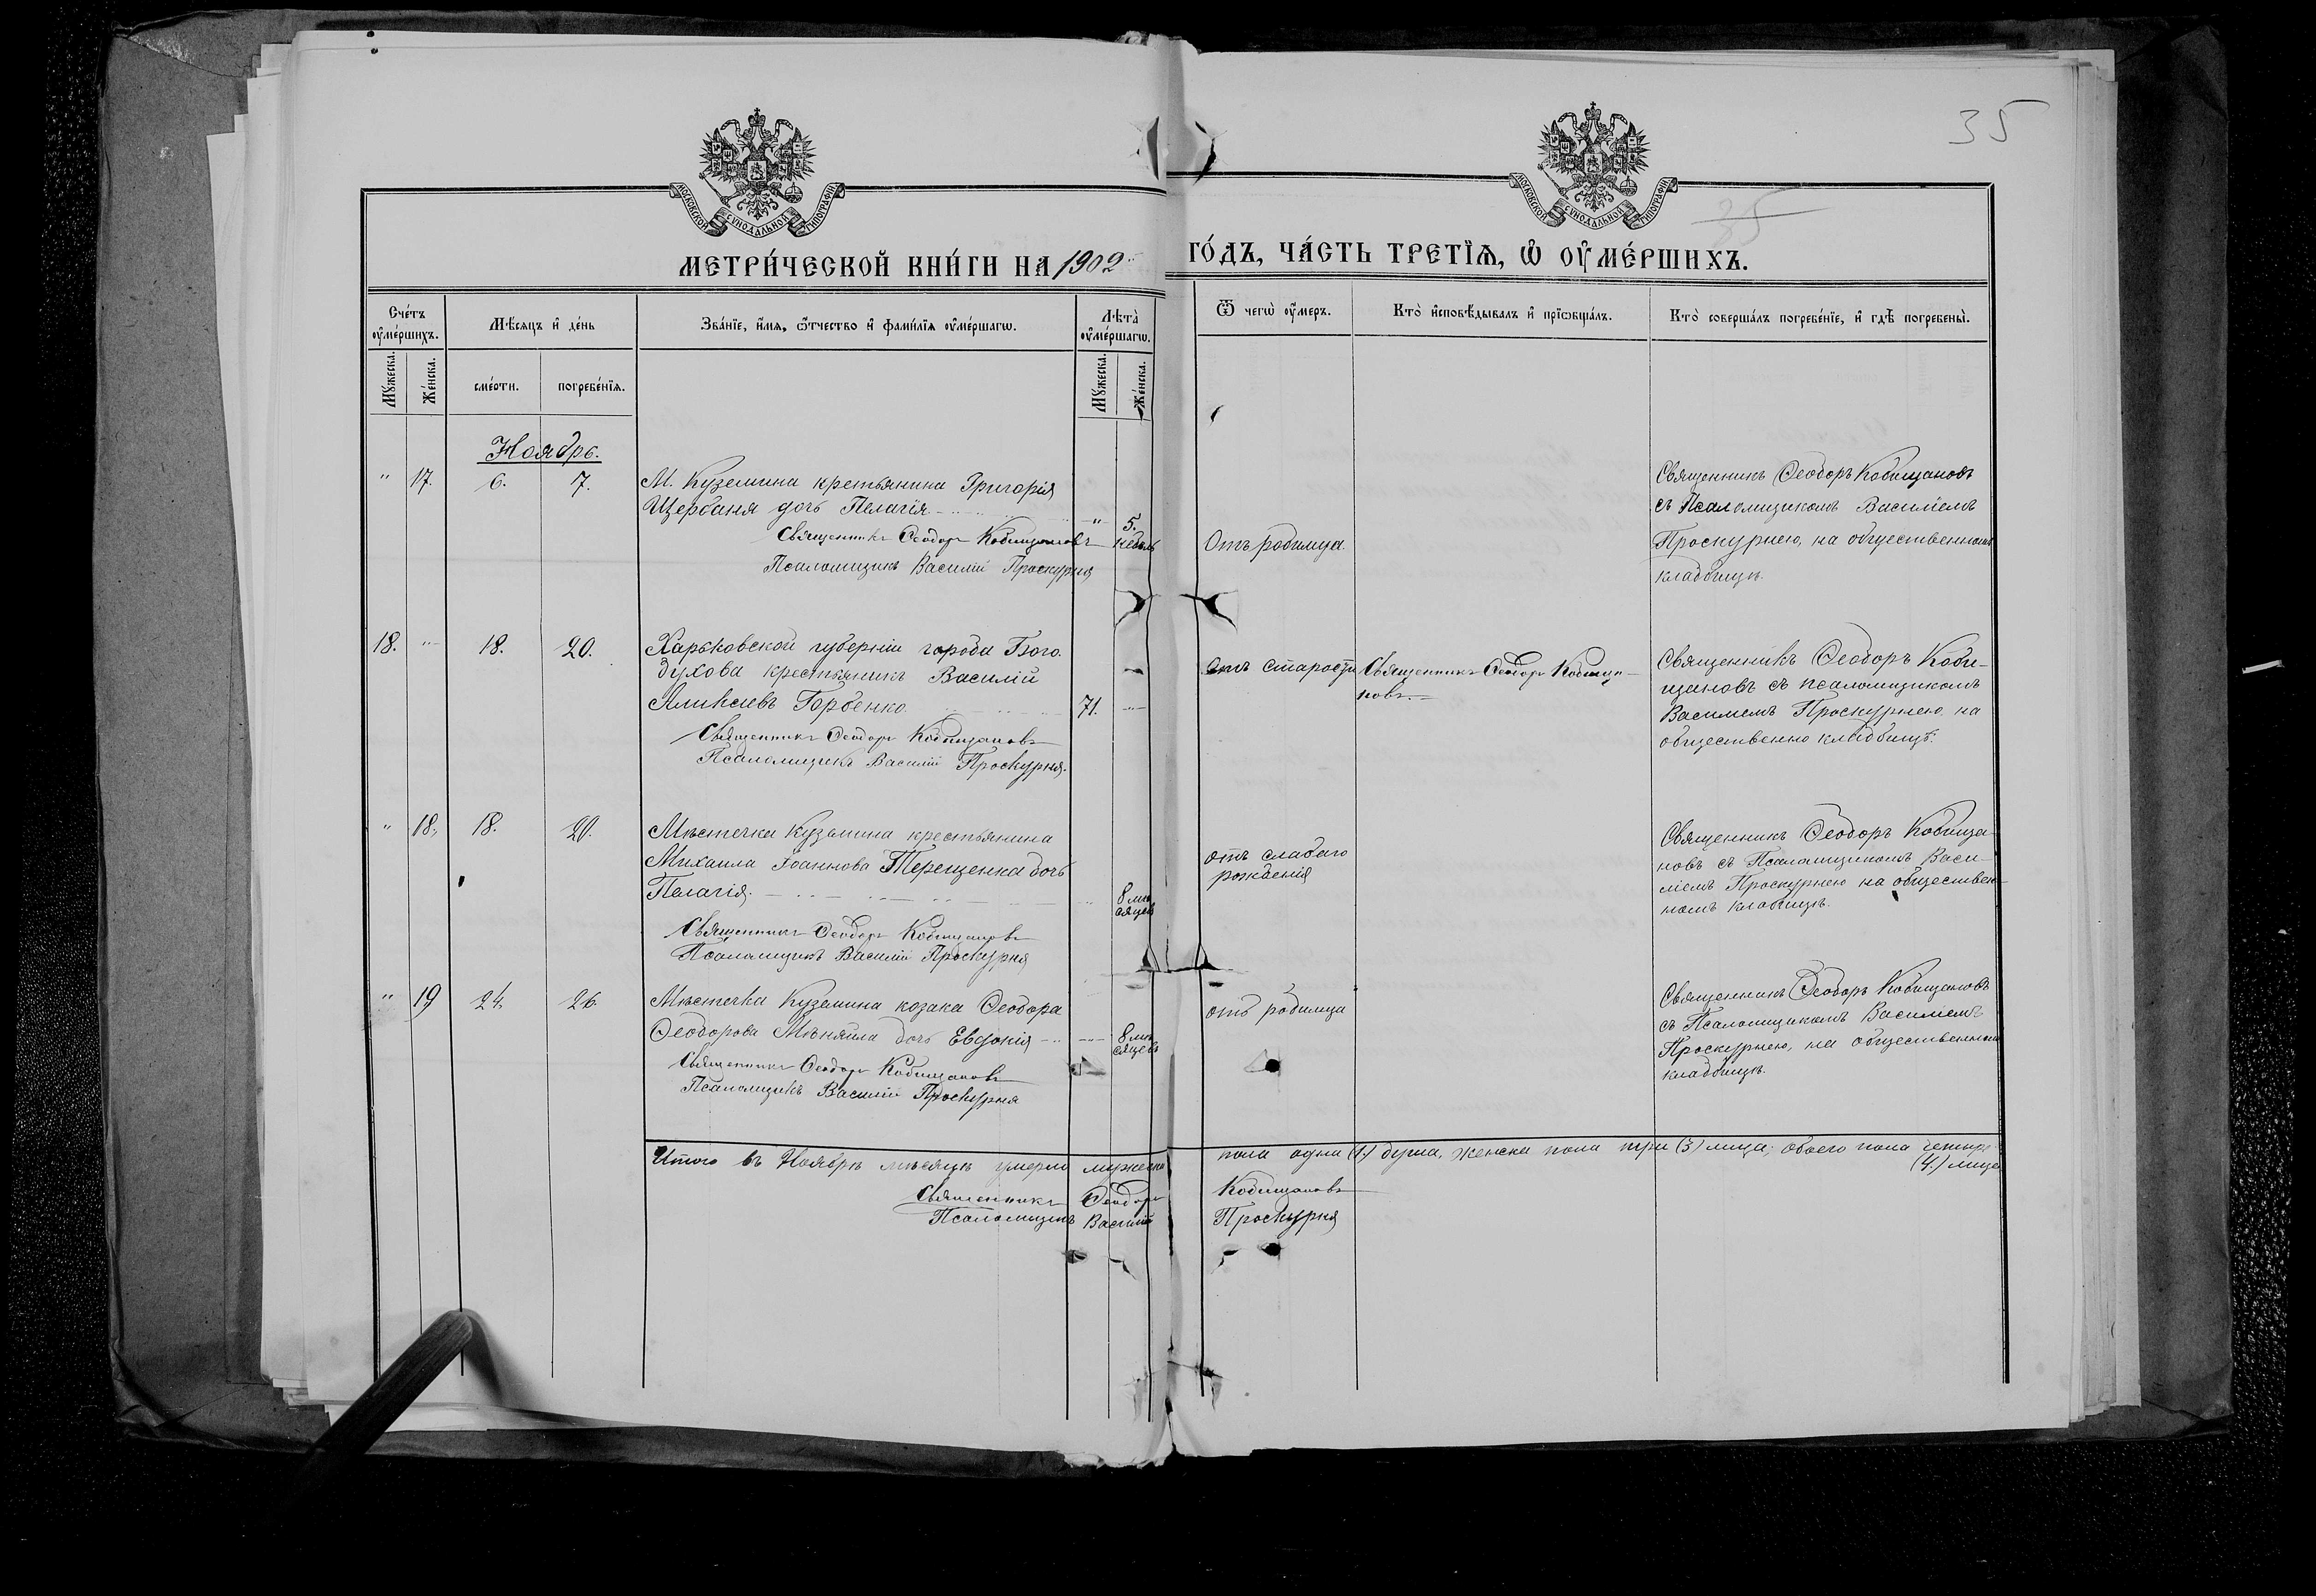 35
35
МОСКОВСКОЙ СУНОДАЛЬНОЙ ТИПОГРАФІИ
МОСКОВСКОЙ СУНОДАЛЬНОЙ ТИПОГРАФІИ
МЕТРИ́ЧЕСКОЙ КНИ́ГИ НА 1902 ГО́ДЪ, ЧА́СТЬ ТРЕТЇѦ, Ѡ҆ ОУ҆МЕ́РШИХЪ.
Сче́тъ оу҆ме́ршихъ.
Мѣ́сяцъ и҆ де́нь
Зва́нїе, и҆́мѧ, ѻ҆́тчество и҆ фами́лїѧ оу҆ме́ршагѡ.
Лѣта̀ оу҆ме́ршагѡ.
Ѿ чегѡ̀ оу҆́меръ.
Кто̀ и҆сповѣ́дывалъ и҆ прїѡбща́лъ.
Кто̀ соверша́лъ погребе́нїе, и҆ гдѣ̀ погребены̀.
Мꙋ́жеска.
Же́нска.
сме́рти.
погребе́нїѧ.
Мꙋ́жеска.
Же́нска.
Ноябрь.
" 17. 6. 7.
М. Куземина крестьянина Григорія
Щербаня дочь Пелагія
" 5. недѣль
Священникъ Ѳеодоръ Кобищановъ
Псаломщикъ Василій Проскурня
Отъ родимца.
Священникъ Ѳеодоръ Кобищановъ
съ Псаломщикомъ Василіемъ
Проскурнею, на общественномъ
кладбищѣ.
18. " 18. 20.
Харьковской губерніи города Бого-
духова крестьянинъ Василій
Горбенко. 71.
Священникъ Ѳеодоръ Кобищановъ
Псаломщикъ Василій Проскурня.
отъ старости
Священникъ Ѳеодоръ Кобища-
новъ.
Священникъ Ѳеодоръ Коби-
щановъ съ псаломщикомъ
Василіемъ Проскурнею на
общественно кладбищѣ.
" 18. 18. 20.
Мѣстечка Куземина крестьянина
Михаила Іоаннова Терещенка дочь
Пелагія.
8 мѣ-
сяцевъ
Священникъ Ѳеодоръ Кобищановъ
Псаломщикъ Василій Проскурня
отъ слабаго
рожденія
Священникъ Ѳеодоръ Кобища-
новъ съ Псаломщикомъ Васи-
ліемъ Проскурнею на обществен-
номъ кладбищѣ.
" 19 24. 26
Мѣстечка Куземина козака Ѳеодора
Ѳеодорова Мѣняйла дочь Евдокія
8 мѣ-
сяцевъ
Священникъ Ѳеодоръ Кобищановъ
Псаломщикъ Василій Проскурня
отъ родимца
Священникъ Ѳеодоръ Кобищановъ
съ Псаломщикомъ Василіемъ
Проскурнею, на общественномъ
кладбищѣ.
Итого въ Ноябрѣ мѣсяцѣ умерло мужеска пола одна (1) душа, женска пола три (3) лица; обоего пола четыре
(4) лица
Священникъ Ѳеодоръ Кобищановъ
Псаломщикъ Василій Проскурня